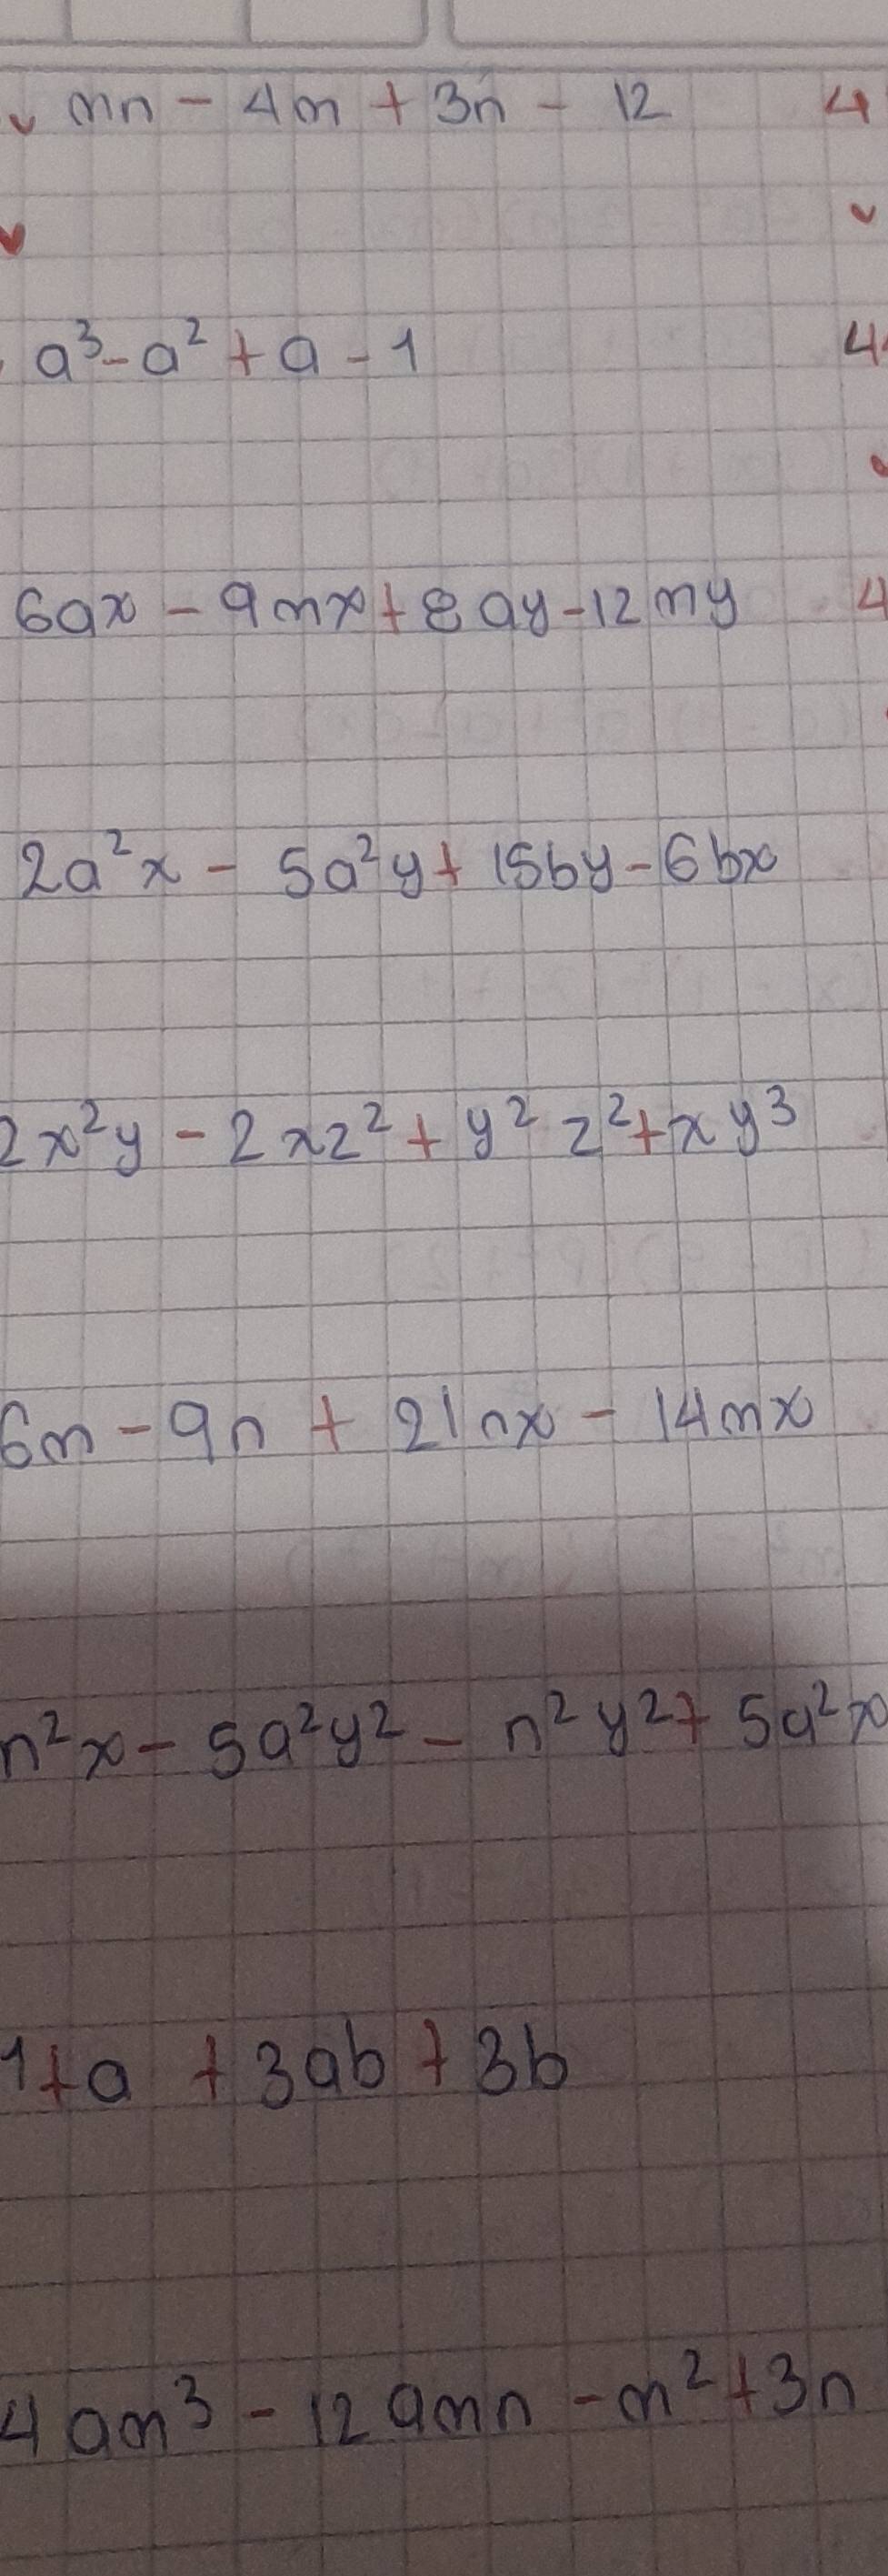 mn - 4m + 3n - 12 4
a³ - a² + a - 1 4
6ax - 9mx + 8ay - 12my 4
2a²x - 5a²y + 15by - 6bx
2x²y - 2xz² + y²z² + xy³
6m - 9n + 21nx - 14mx
n²x - 5a²y² - n²y² + 5a²x
1 + a + 3ab + 3b
4am³ - 12amn - m² + 3n